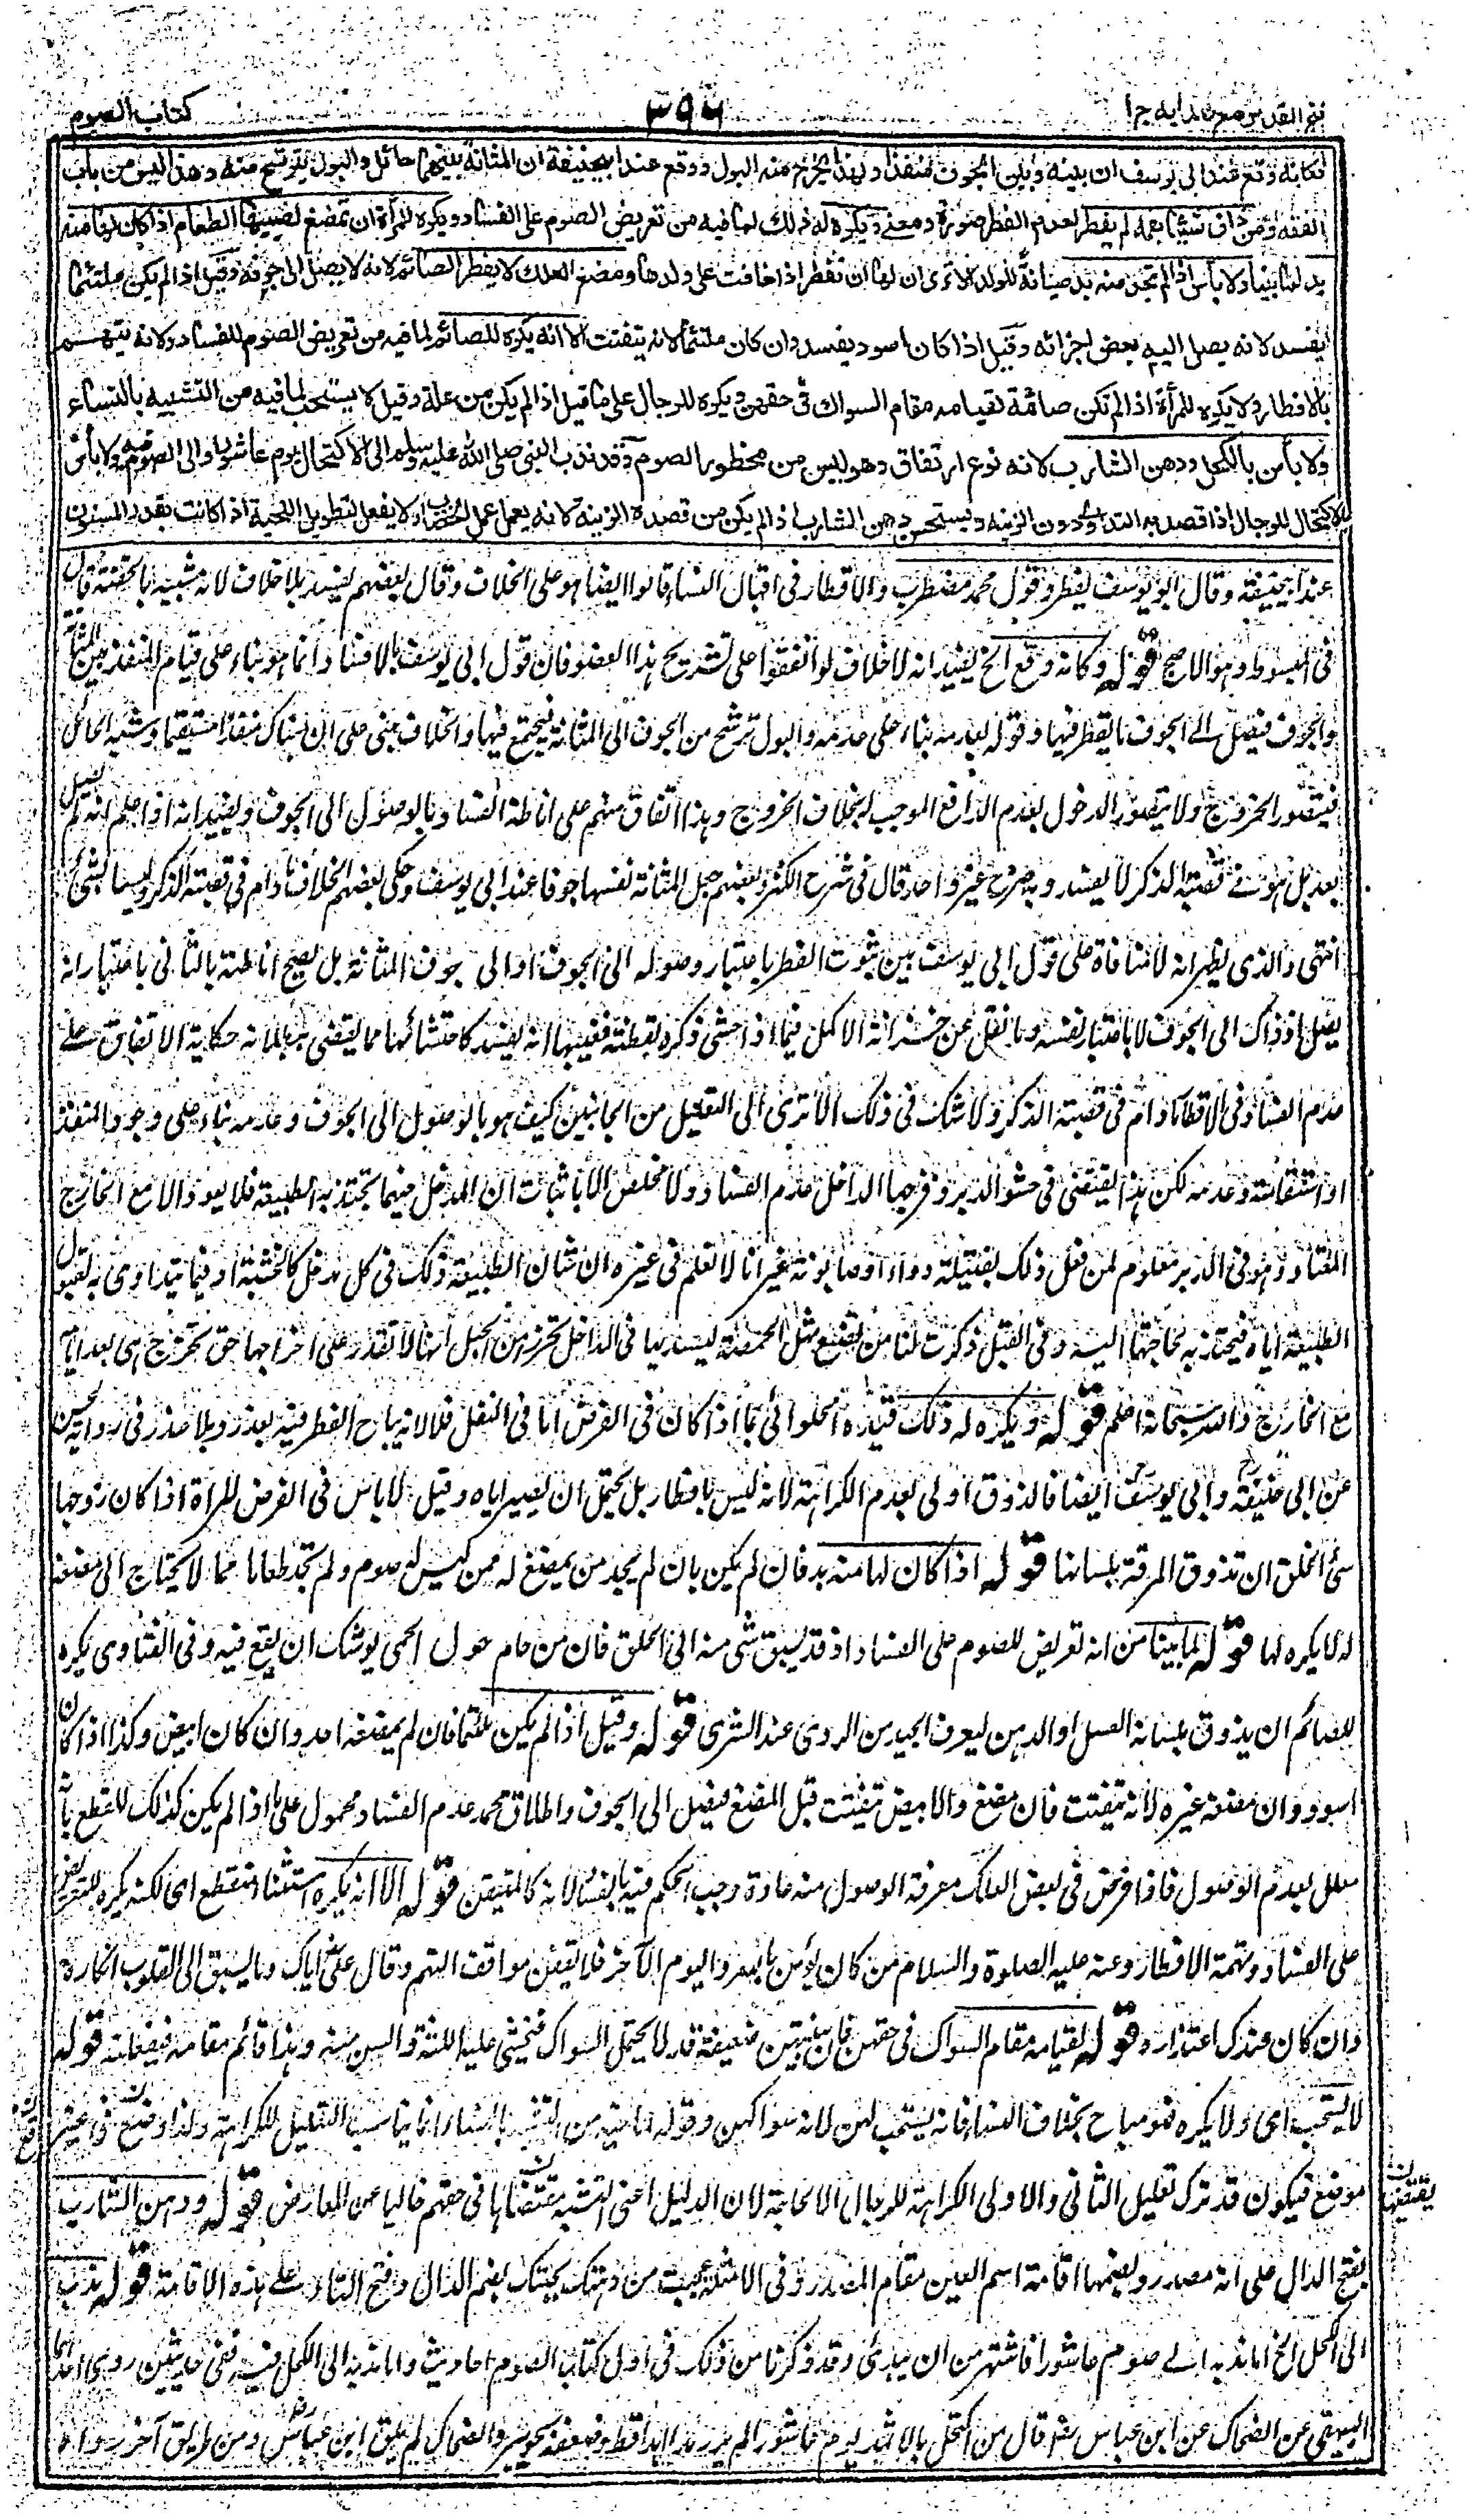 فتح القدير مع هدايه ج ا
۳۹۶
كتاب الصوم
فكانه وقع عند ابى يوسف ان بينه وبين الجوف منفذا ولهذا يخرج منه البول ووقع عند ابيحنيفة ان المثانة بينهما حائل والبول يترشح منه وهذا ليس من باب
الفقه ومن ذاق شيئا بفمه لم يفطر لعدم الفطر صورة ومعنى ويكره له ذلك لما فيه من تعريض الصوم على الفساد ويكره للمرأة ان تمضغ لصبيها الطعام اذا كان لها منه
بد لما بينا ولا بأس اذا لم تجد منه بدا صيانة للولد الا ترى ان لها ان تفطر اذا خافت على ولدها ومضغ العلك لا يفطر الصائم لانه لا يصل الى جوفه وقيل اذا لم يكن ملتئما
يفسد لانه يصل اليه بعض اجزائه وقيل اذا كان اسود يفسد وان كان ملتئما لانه يتفتت الا انه يكره للصائم لما فيه من تعريض الصوم للفساد ولانه يتهم
بالافطار ولا يكره للمرأة اذا لم تكن صائمة لقيامه مقام السواك فى حقهن ويكره للرجال على ما قيل اذا لم يكن من علة وقيل لا يستحب لما فيه من التشبيه بالنساء
ولا بأس بالكحل ودهن الشارب لانه نوع ارتفاق وهو ليس من محظور الصوم وقد ندب النبى صلى الله عليه وسلم الى الاكتحال يوم عاشوراء والى الصوم فيه ولا بأس
بالاكتحال للرجال اذا قصد به التداوى دون الزينة ويستحسن دهن الشارب اذا لم يكن من قصده الزينة لانه يعمل عمل الخضاب ولا يفعل لتطويل اللحية اذا كانت بقدر المسنون
عند ابيحنيفة وقال ابو يوسف يفطر وقول محمد مضطرب والاقطار فى اقبال النساء قالوا ايضا هو على الخلاف وقال بعضهم يفسد بلا خلاف لانه شبيه بالحقنة قال
فى المبسوط وهو الاصح قوله وكانه وقع الخ يفيد انه لا خلاف لو اتفقوا على تشريح هذا العضو فان قول ابى يوسف بالافساد انما هو بناء على قيام المنفذ بين المثانة
والجوف فيصل الى الجوف ما يقطر فيها وقوله بعدمه بناء على عدمه والبول يترشح من الجوف الى المثانة فيجتمع فيها والخلاف مبنى على ان هناك منفذا مستقيما او شبه الحائل
فيتصور الخروج ولا يتصور الدخول لعدم الدافع الموجب له بخلاف الخروج وهذا اتفاق منهم على اناطة الفساد بالوصول الى الجوف ويفيد انه اذا علم انه لم يصل
بعد بل هو فى قصبة الذكر لا يفسد وبه صرح غير واحد قال فى شرح الكنز وبعضهم جعل المثانة نفسها جوفا عند ابى يوسف وحكى بعضهم الخلاف ما دام فى قصبة الذكر وليسا بشئ
انتهى والذى يظهر انه لا منافاة على قول ابى يوسف بين ثبوت الفطر باعتبار وصوله الى الجوف او الى جوف المثانة بل يصح اناطته بالثانى باعتبار انه
يصل اذ ذاك الى الجوف لا باعتبار نفسه وما نقل عن خزانة الاكمل فيما اذا حشى ذكره بقطنة فغيبها انه يفسد كاحتشائها مما يقضى ببطلانه حكاية الاتفاق على
عدم الفساد فى الاقطار ما دام فى قصبة الذكر ولا شك فى ذلك الا ترى الى التعليل من الجانبين كيف هو بالوصول الى الجوف وعدمه بناء على وجود المنفذ
او استقامته وعدمه لكن هذا يقتضى فى حشو الدبر وفرجها الداخل عدم الفساد ولا مخلص الا باثبات ان المدخل فيهما تجتذبه الطبيعة فلا يعود الا مع الخارج
المعتاد وهو فى الدبر معلوم لمن فعل ذلك بفتيلة دواء او صابونة غير انا لا نعلم فى غيره ان شان الطبيعة ذلك فى كل مدخل كالخشبة او فيما يتداوى به لقبول
الطبيعة اياه فتجتذبه لحاجتها اليه وفى القبل ذكرت لنا من تضع مثل الحمصة ليسد بها فى الداخل تحرزا من الحبل انها لا تقدر على اخراجها حتى تخرج هى بعد ايام
مع الخارج والله سبحانه اعلم قوله ويكره له ذلك قيده الحلوائى بما اذا كان فى الفرض اما فى النفل فلا لانه يباح الفطر فيه بعذر وبلا عذر فى رواية الحسن
عن ابى حنيفة وابى يوسف ايضا فالذوق اولى بعدم الكراهة لانه ليس بافطار بل يحتمل ان يصير اياه وقيل لا باس فى الفرض للمراة اذا كان زوجها
سئ الخلق ان تذوق المرقة بلسانها قوله اذا كان لها منه بد فان لم يكن بان لم يجد من يمضغ له ممن ليس له صوم ولم تجد طعاما مما لا يحتاج الى مضغه
له لا يكره لها قوله لما بينا من انه تعريض للصوم على الفساد اذ قد يسبق شئ منه الى الحلق فان من حام حول الحمى يوشك ان يقع فيه وفى الفتاوى يكره
للصائم ان يذوق بلسانه العسل او الدهن ليعرف الجيد من الردى عند الشرى قوله وقيل اذا لم يكن ملتئما فان لم يمضغه احد وان كان ابيض وكذا اذا كان
اسود وان مضغه غيره لانه يتفتت فان مضغ والابيض يتفتت قبل المضغ فيصل الى الجوف واطلاق محمد عدم الفساد محمول على ما اذا لم يكن كذلك للقطع بانه
معلل بعدم الوصول فاذا فرض فى بعض العلك معرفة الوصول منه عادة وجب الحكم فيه بالفساد لانه كالمتيقن قوله الا انه يكره استثناء منقطع اى لكنه يكره للتعريض
على الفساد وتهمة الافطار وعنه عليه الصلوة والسلام من كان يؤمن بالله واليوم الآخر فلا يقفن مواقف التهم وقال على اياك وما يسبق الى القلوب انكاره
وان كان عندك اعتذاره قوله لقيامه مقام السواك فى حقهن فان بنيتهن ضعيفة قد لا يحتمل السواك فيخشى على اللثة والسن منه وهذا قائم مقامه فيفعلنه قوله
لا يستحب اى ولا يكره فهو مباح بخلاف النساء فانه يستحب لهن لانه سواكهن وقوله لما فيه من التشبه بالنساء انما يناسب التعليل للكراهة ولذا وضع فى غير
موضع فيكون قد ترك تعليل الثانى والاولى الكراهة للرجال الا لحاجة لان الدليل اعنى التشبه مقتضاها فى حقهم خاليا عن المعارض قوله ودهن الشارب
يقتضيها
بفتح الدال على انه مصدر وبضمها اقامة اسم العين مقام المصدر وفى الامثلة عجبت من دهنك لحيتك بضم الدال وفتح التاء على هذه الاقامة قوله ندب
الى الكحل الخ اما ندبه الى صوم عاشورا فاشهر من ان يبدئ وقد ذكرنا من ذلك فى اول كتاب الصوم احاديث واما ندبه الى الكحل فيه ففى حديثين روى احدهما
البيهقى عن الضحاك عن ابن عباس قال من اكتحل بالاثمد يوم عاشورا لم ير رمدا ابدا قط وضعفه بجويبر والضحاك لم يلق ابن عباس ومن طريق آخر رواه